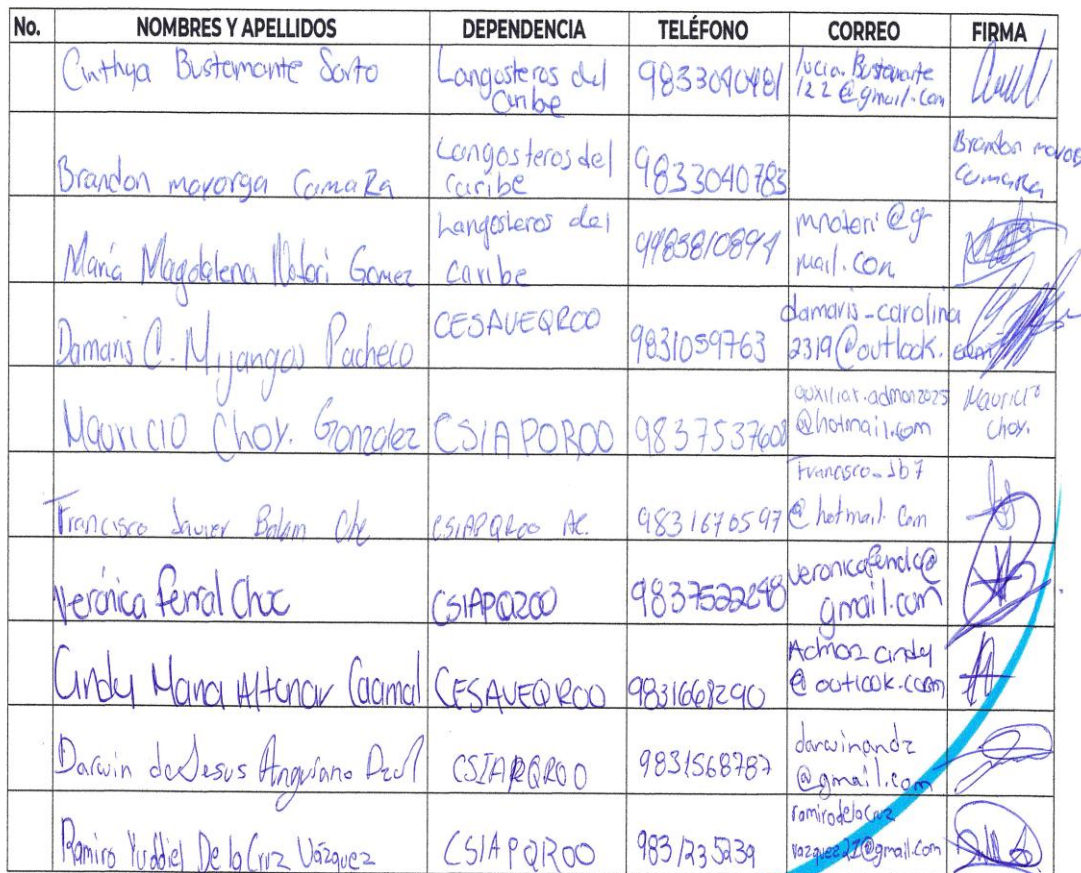 No. NOMBRES Y APELLIDOS DEPENDENCIA TELÉFONO CORREO FIRMA
Cinthya Bustamante Sarto Langosteros del Caribe 9833040481 lucia.Bustamante122@gmail.com
Brandon mayorga CamaRa Langosteros del Caribe 9833040783 Brandon CamaRa
María Magdalena Notari Gomez Langosteros del caribe 9983810894 mnotari@gmail.com
Damaris C. Mijangos Pacheco CESAVEQROO 9831059763 damaris_carolina2319@outlook.
Mauricio Choy. Gonzalez CSIAPQROO 9837537608 auxiliar.admon2025@hotmail.com Mauricio Choy.
Francisco Javier Balam Che CSIAPQRoo AC. 9831670597 Francisco_Jb7@hotmail.com
Verónica Ferral Choc CSIAPQROO 9837522248 @gmail.com
Cindy Maria Caamal CESAVEQROO 9831668290 @outlook.com
Darwin de Jesus Anguiano Dzul CSIAPQROO 9831568787 darwinandz@gmail.com
Ramiro Yuddiel De la Cruz Vázquez CSIAPQROO 9831235239 ramirodelacruzvazquez27@gmail.com